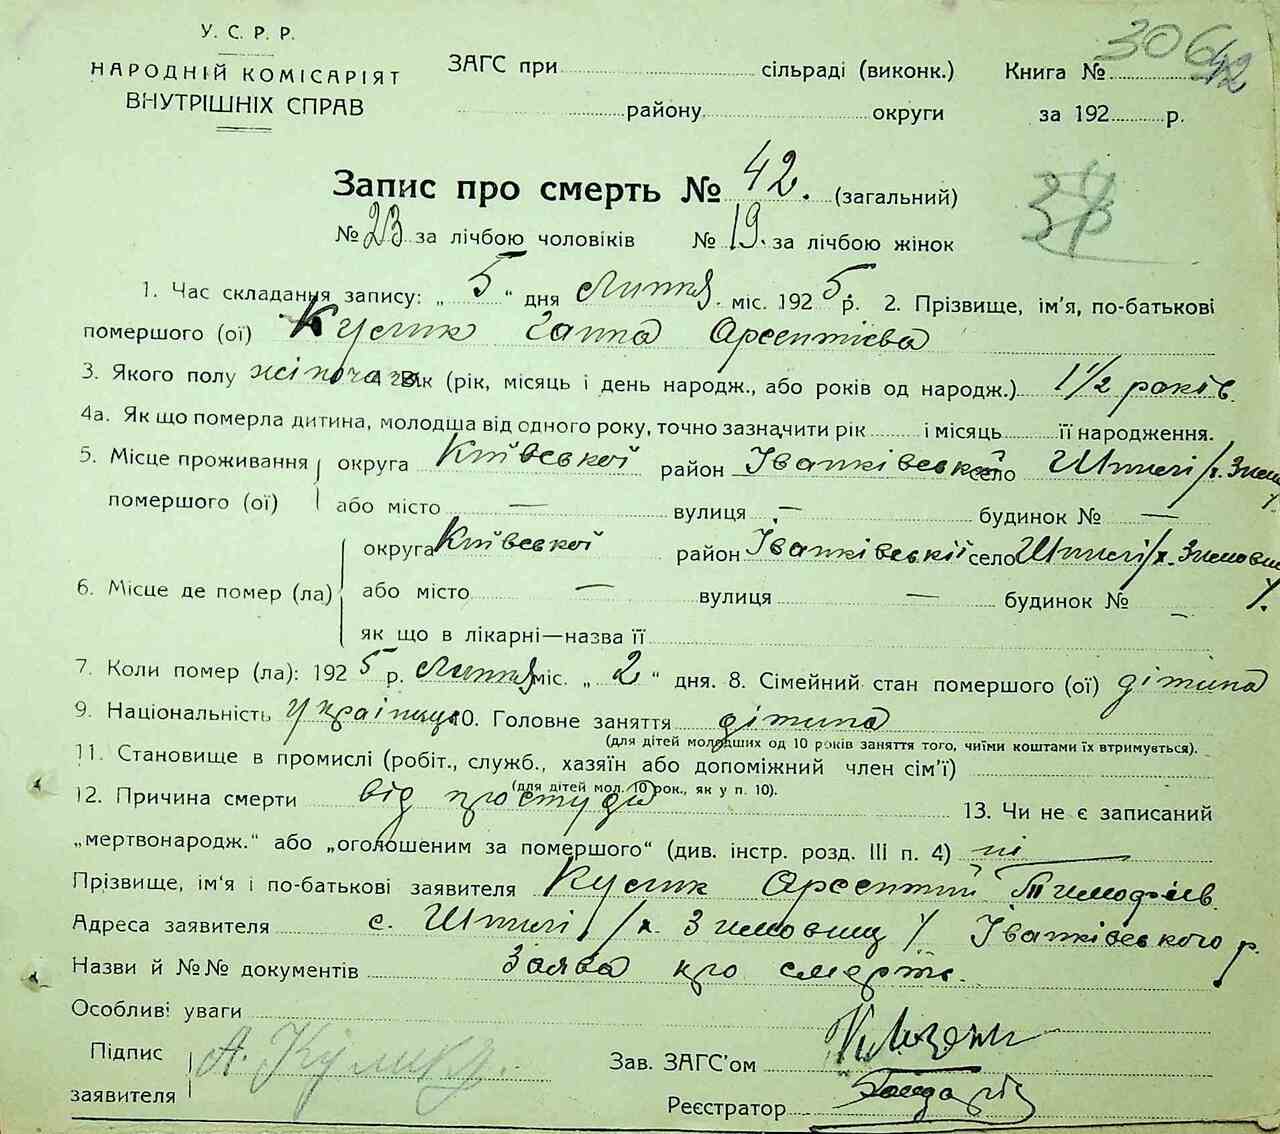 У. С. Р. Р.
НАРОДНІЙ КОМІСАРІЯТ
ВНУТРІШНІХ СПРАВ
ЗАГС при сільраді (виконк.)
району округи
Книга № 306 42
за 192 р.
Запис про смерть № 42. (загальний)
№ 23 за лічбою чоловіків № 19. за лічбою жінок
1. Час складання запису: „ 5 “ дня Липня міс. 192 5 р. 2. Прізвище, ім'я, по-батькові
помершого (ої) Кулик Ганна Арсентієва
3. Якого полу жіноча 4. Вік (рік, місяць і день народж., або років од народж.) 1 1/2 років
4а. Як що померла дитина, молодша від одного року, точно зазначити рік і місяць її народження.
5. Місце проживання помершого (ої) округа Київської район Іванківської село Шпилі /х.
або місто — вулиця — будинок № —
6. Місце де помер (ла) округа Київської район Іванківський село Шпилі /х. Зимовищ
або місто — вулиця — будинок №
як що в лікарні—назва її
7. Коли помер (ла): 192 5 р. Липня міс. „ 2 “ дня. 8. Сімейний стан помершого (ої) дітина
9. Національність Українця 10. Головне заняття дітина
(для дітей молодших од 10 років заняття того, чиїми коштами їх втримується).
11. Становище в промислі (робіт., служб., хазяїн або допоміжний член сім'ї)
(для дітей мол. 10 рок., як у п. 10).
12. Причина смерти від простуди 13. Чи не є записаний
„мертвонародж.“ або „оголошеним за помершого“ (див. інстр. розд. III п. 4) ні
Прізвище, ім'я і по-батькові заявителя Кулик Арсентий Тимофіїв
Адреса заявителя с. Шпилі /х. Зимовищ/ Іванківського р.
Назви й №№ документів Заява про смерть.
Особливі уваги
Підпис заявителя А. Кулик
Зав. ЗАГС'ом
Реєстратор